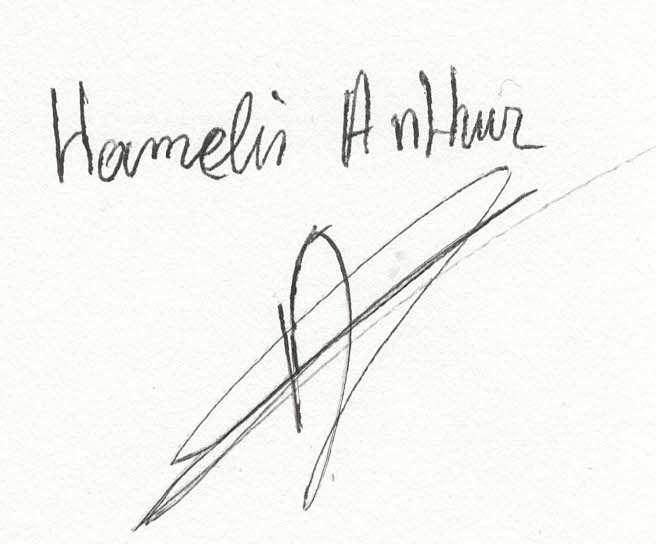 Hamelin Arthur